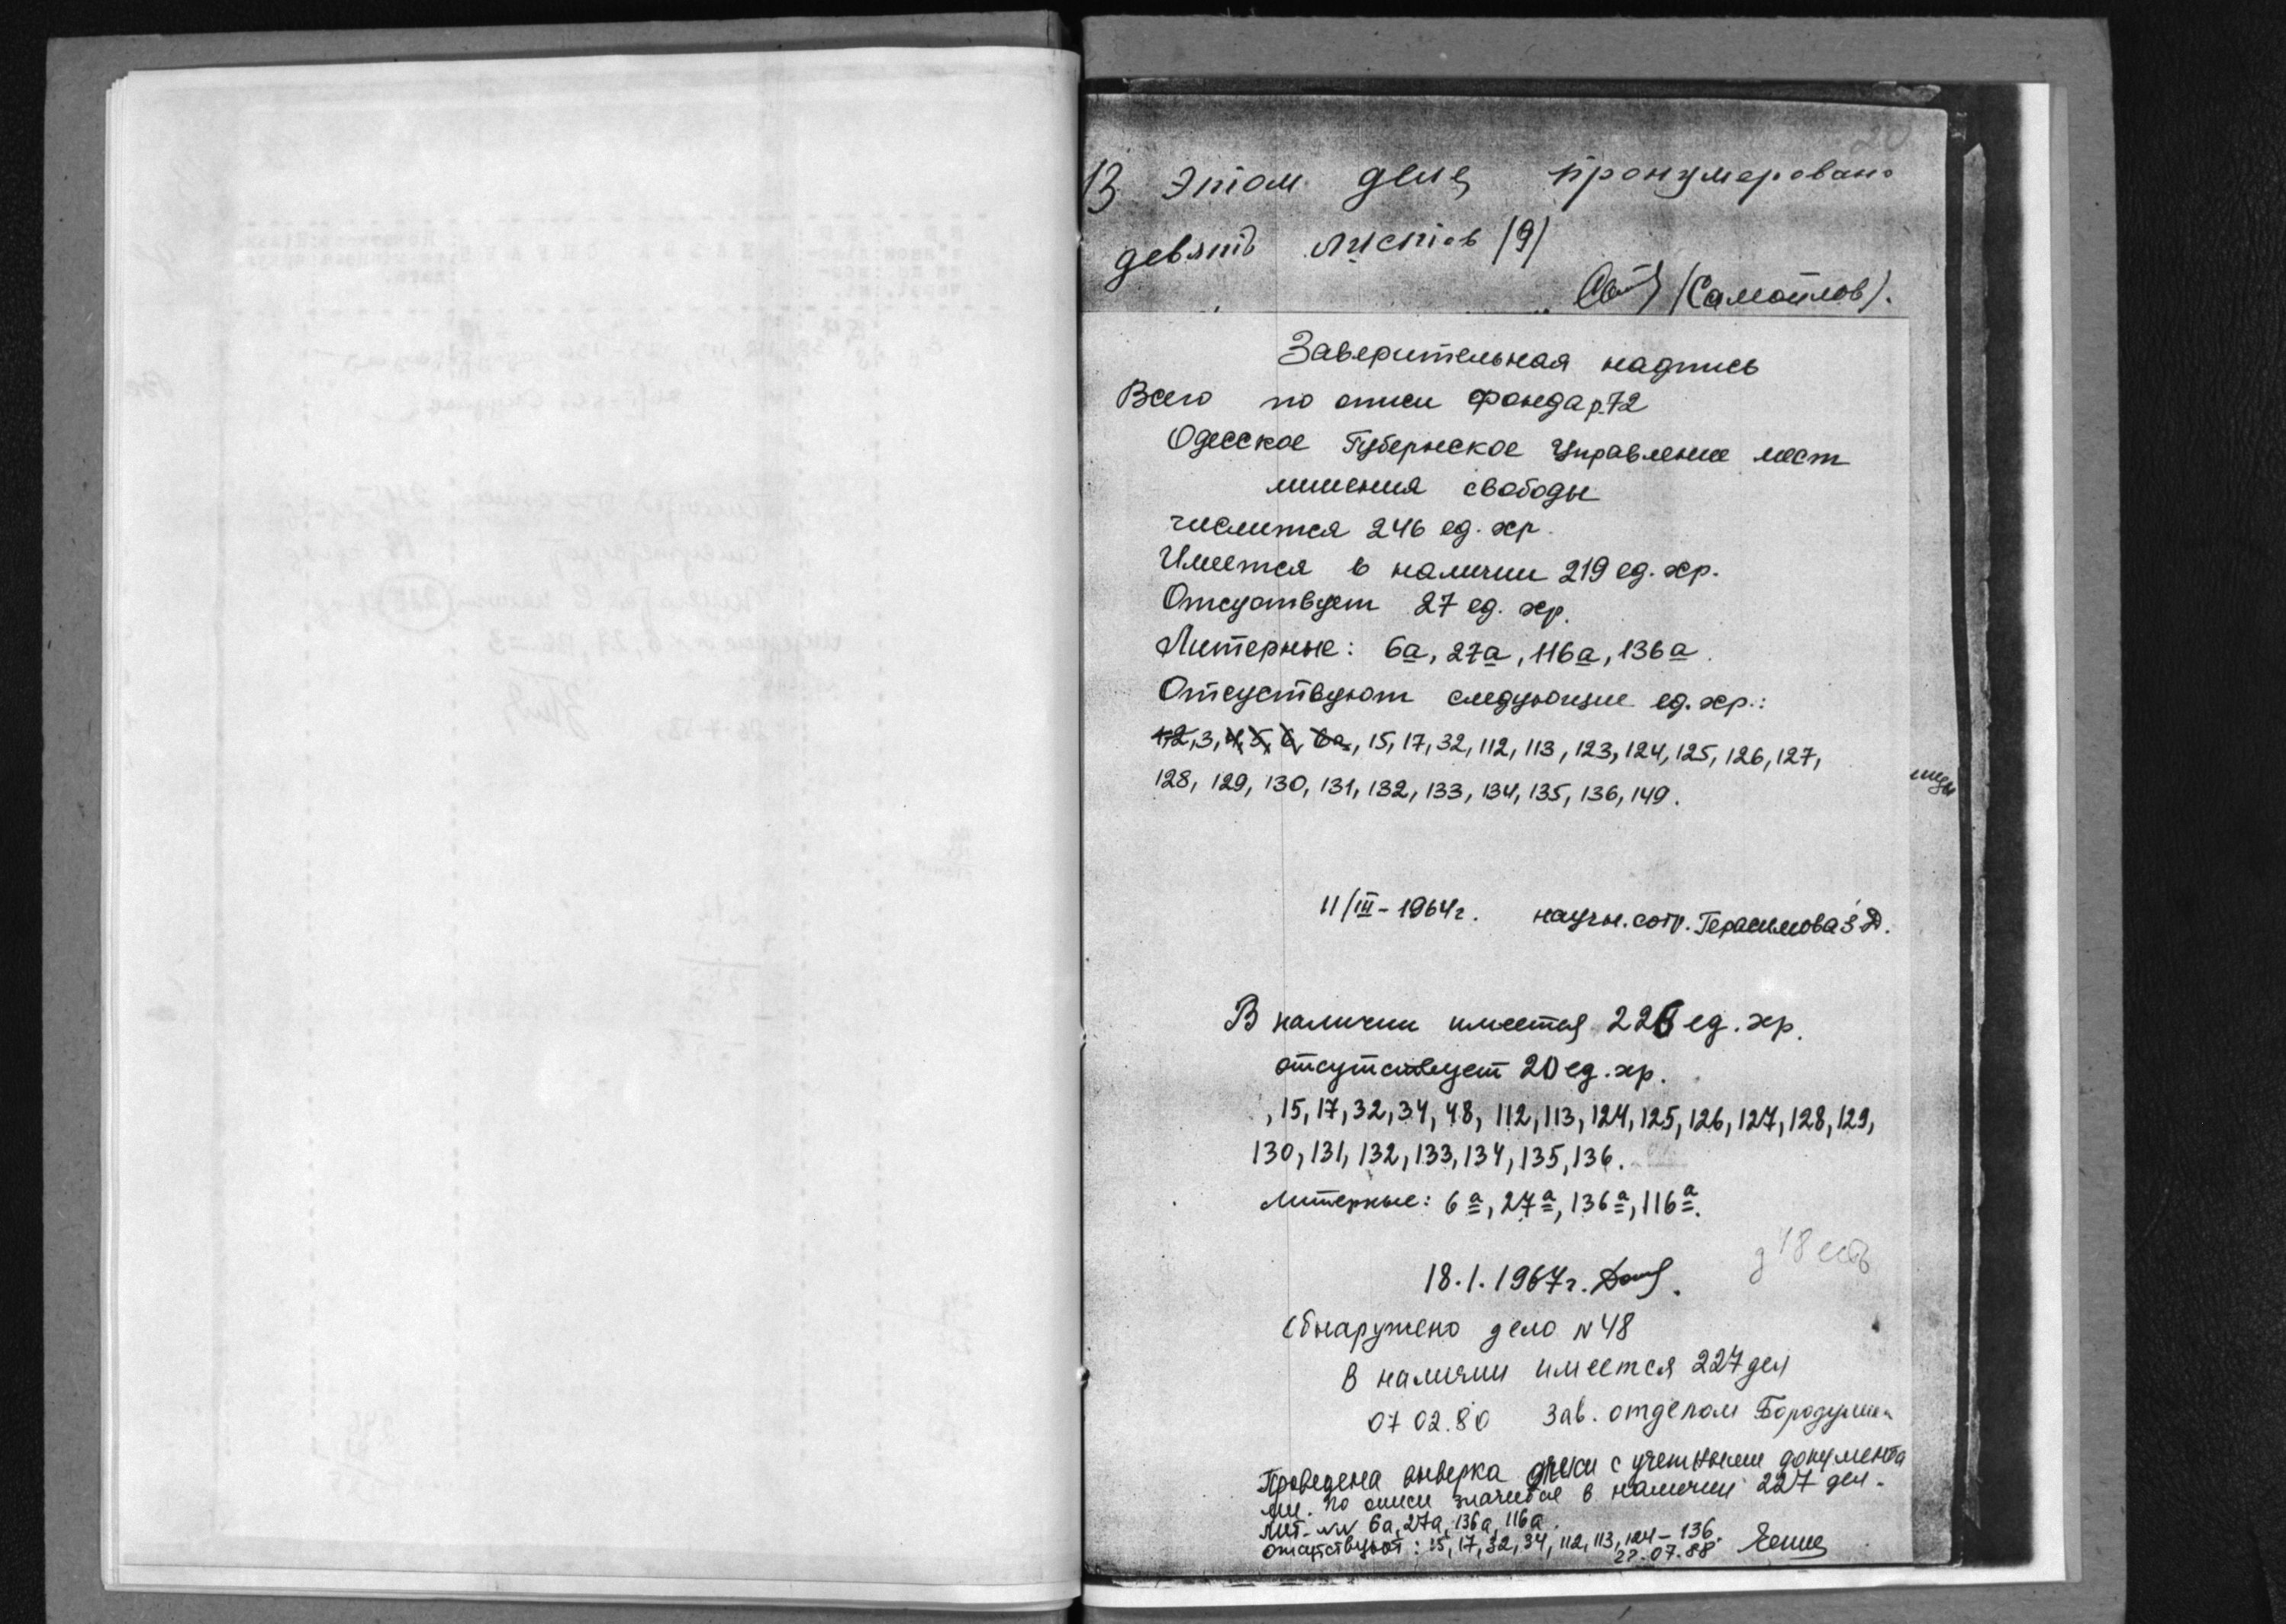 20
В этом деле пронумеровано
девять листов /9/
(Самойлов).
Заверительная надпись
Всего по описи фонда р.72
Одесское Губернское Управление мест
лишения свободы
числится 246 ед. хр.
Имеется в наличии 219 ед. хр.
Отсутствует 27 ед. хр.
Литерные: 6а, 27а, 116а, 136а.
Отсутствуют следующие ед. хр.:
1,2,3,4,5,6,6а, 15, 17, 32, 112, 113, 123, 124, 125, 126, 127,
128, 129, 130, 131, 132, 133, 134, 135, 136, 149.
11/III-1964г. научн. сотр. Герасимова З Д.
В наличии имеется 226 ед. хр.
отсутствует 20 ед. хр.
, 15, 17, 32, 34, 48, 112, 113, 124, 125, 126, 127, 128, 129,
130, 131, 132, 133, 134, 135, 136.
Литерные: 6а, 27а, 136а, 116а.
д 18 есть
18.1.1967г.
Обнаружено дело N 48
В наличии имеется 227 дел
07 02.80 Зав. отделом
Проведена выверка описи с учетными документа
ми. По описи значится в наличии 227 дел.
Лит. NN 6а, 27а, 136а, 116а.
отсутствуют: 15, 17, 32, 34, 112, 113, 124-136.
22.07.88